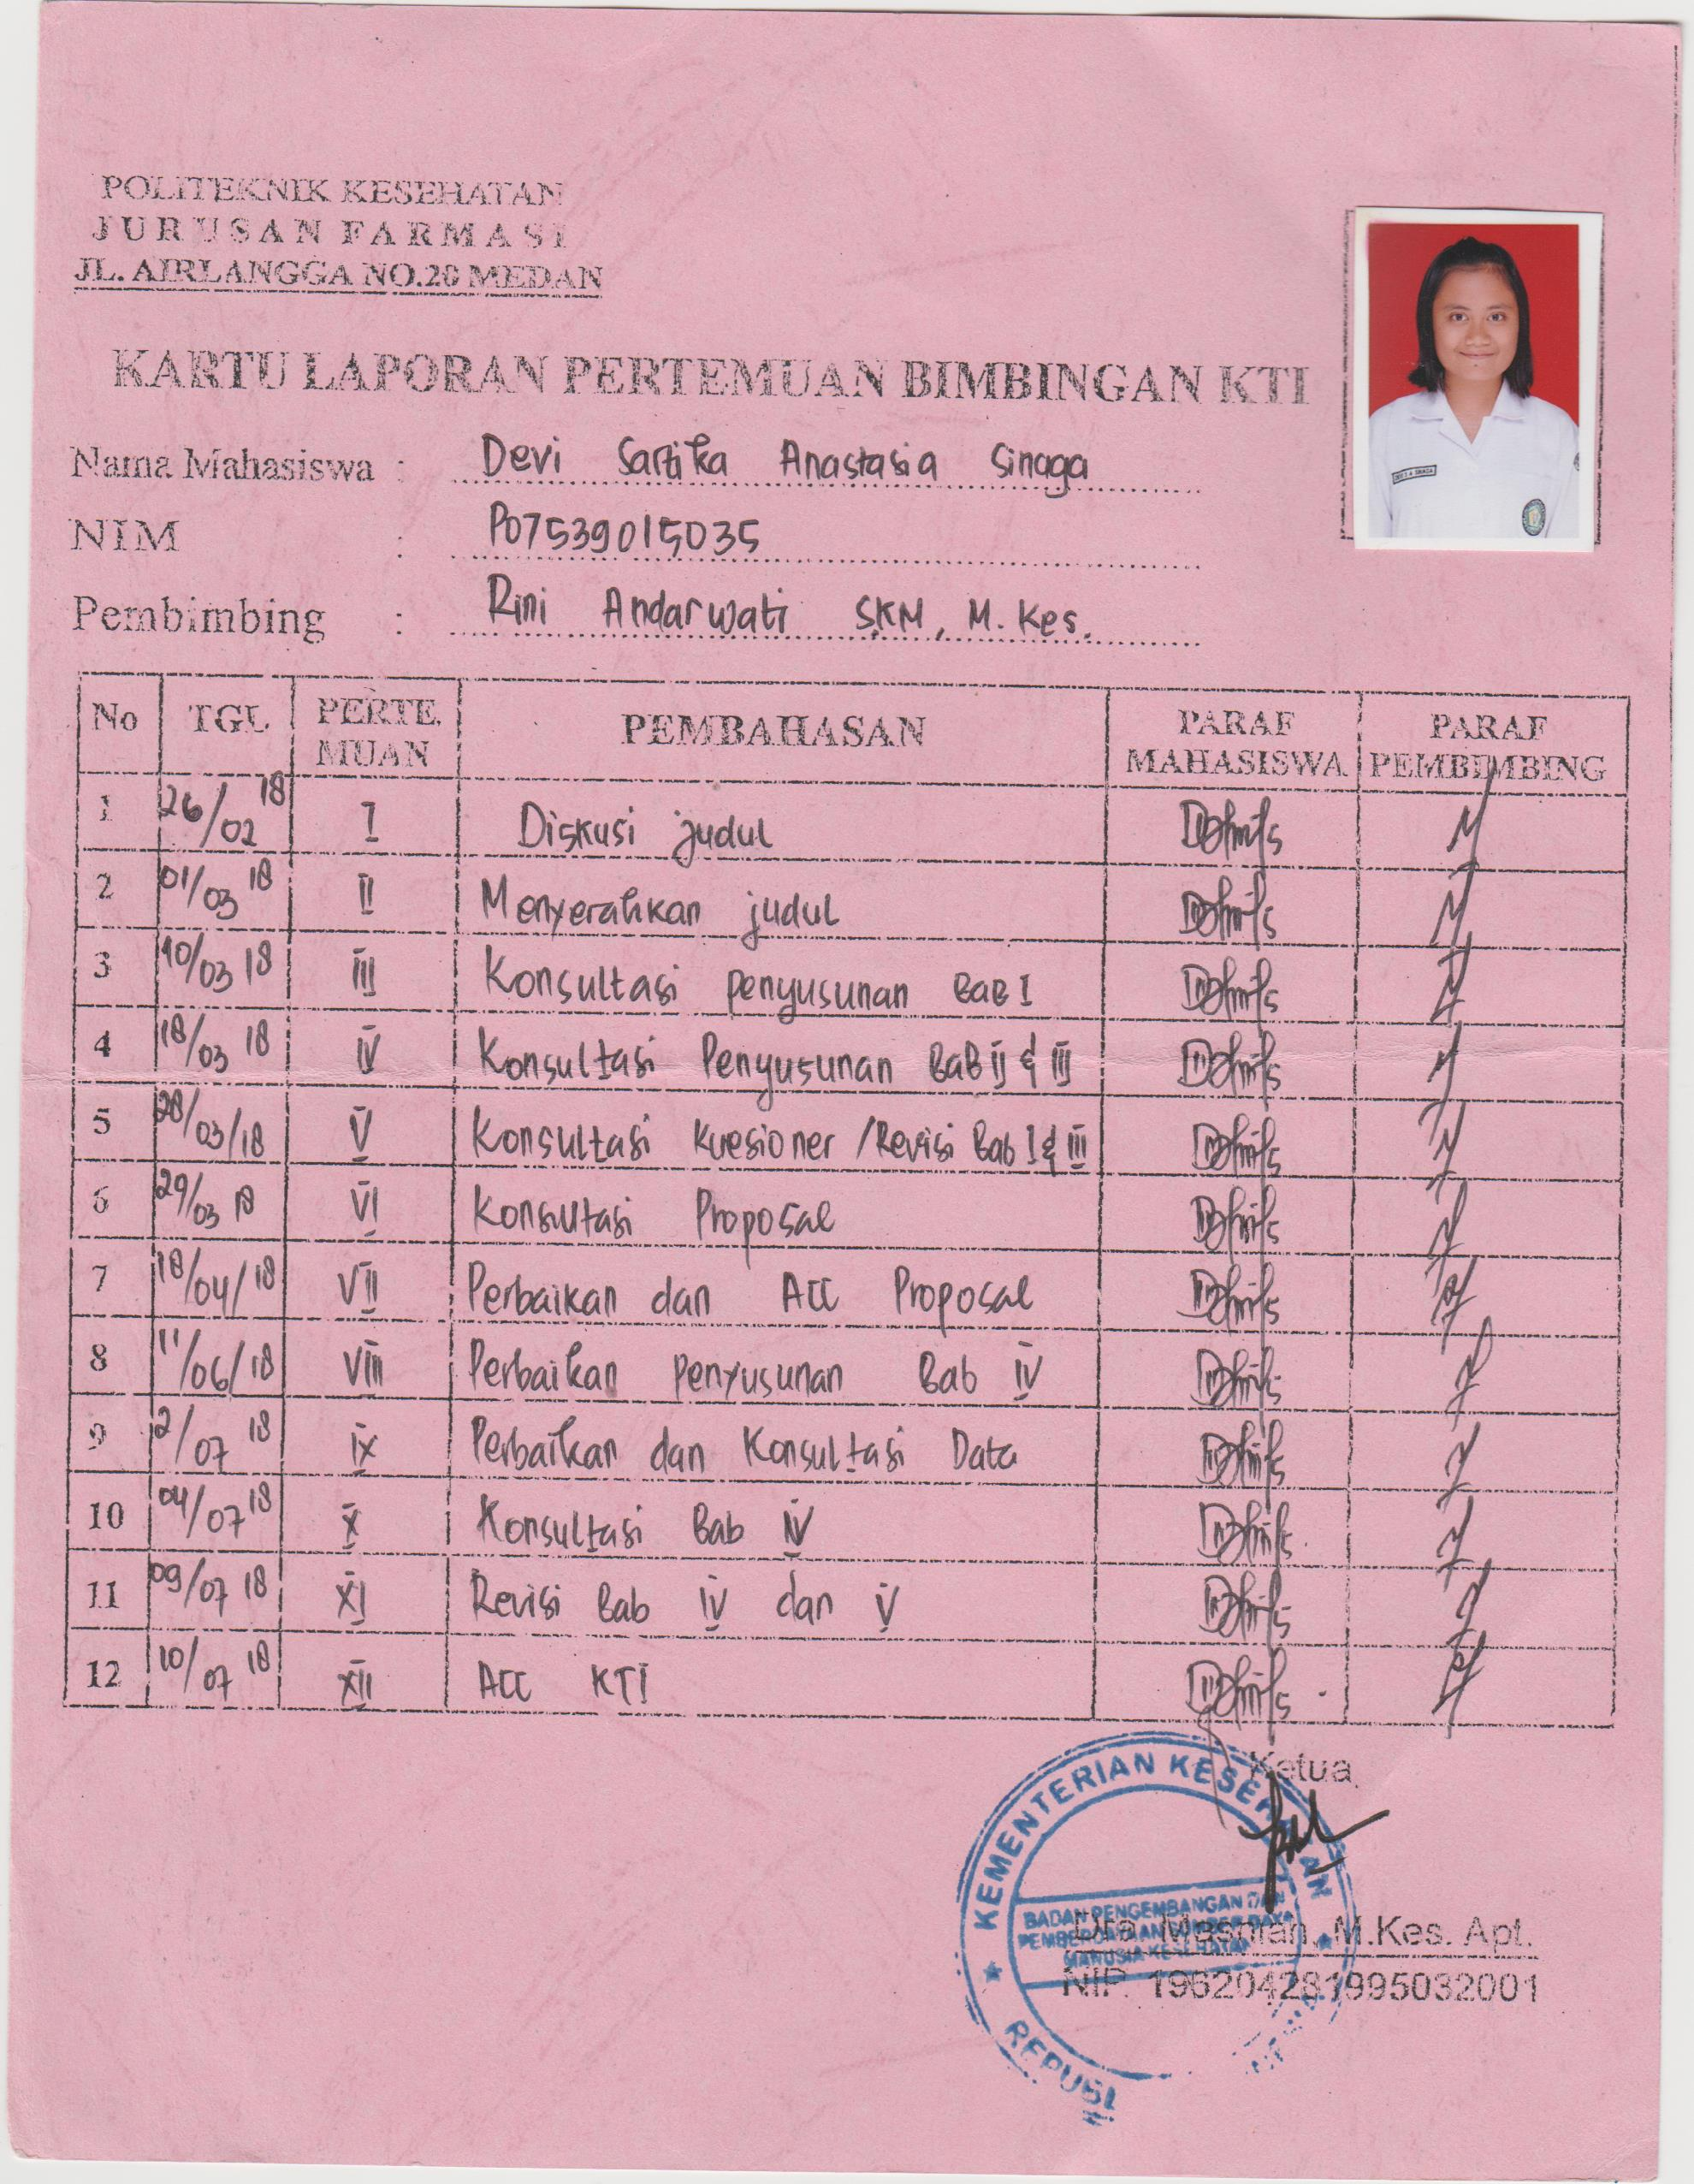 POLITEKNIK KESEHATAN
JURUSAN FARMASI
JL. AIRLANGGA NO.20 MEDAN
KARTU LAPORAN PERTEMUAN BIMBINGAN KTI
Nama Mahasiswa : Devi Sartika Anastasia Sinaga
NIM : P07539015035
Pembimbing : Rini Andarwati SKM, M. Kes.
No TGL PERTE MUAN PEMBAHASAN PARAF MAHASISWA PARAF PEMBIMBING
1 26/02 18 I Diskusi judul
2 01/03 18 II Menyerahkan judul
3 10/03 18 III Konsultasi penyusunan BAB I
4 18/03 18 IV Konsultasi Penyusunan BAB II & III
5 28/03/18 V Konsultasi Kuesioner /Revisi Bab I & III
6 29/03 18 VI Konsultasi Proposal
7 18/04/18 VII Perbaikan dan ACC Proposal
8 11/06/18 VIII Perbaikan Penyusunan Bab IV
9 2/07 18 IX Perbaikan dan Konsultasi Data
10 04/07 18 X Konsultasi Bab IV
11 09/07 18 XI Revisi Bab IV dan V
12 10/07 18 XII ACC KTI
Ketua
KEMENTERIAN KESEHATAN
BADAN PENGEMBANGAN DAN
PEMBERDAYAAN SUMBER DAYA
MANUSIA KESEHATAN
REPUBL
Dra. Masniah, M.Kes. Apt.
NIP. 196204281995032001